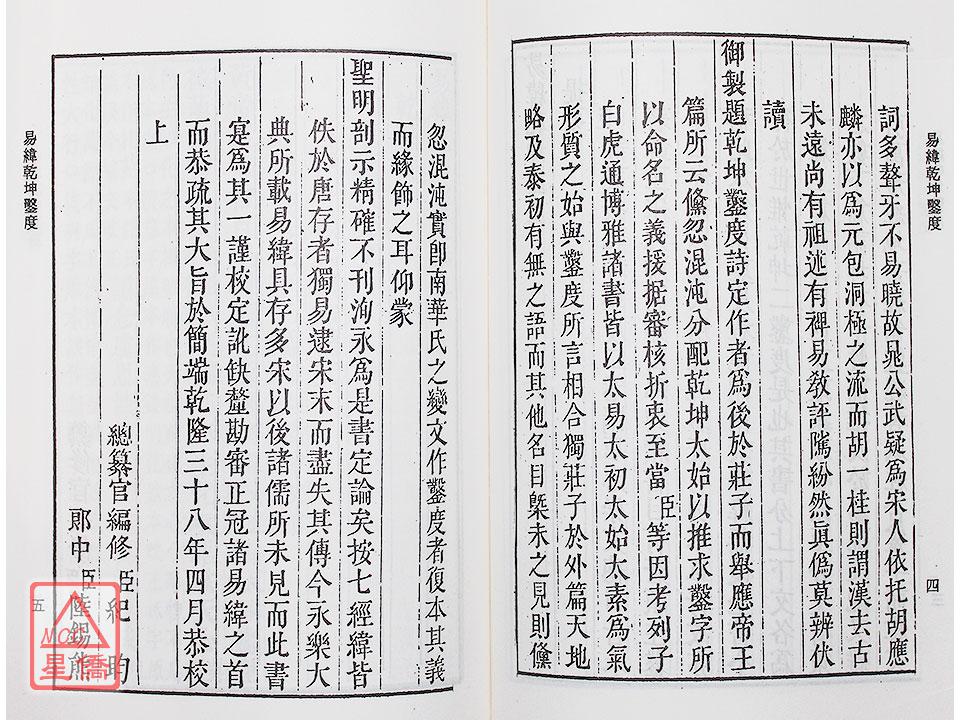 易緯乾坤鑿度
四
詞多聱牙不易曉故晁公武疑爲宋人依托胡應
麟亦以爲元包洞極之流而胡一桂則謂漢去古
未遠尚有祖述有裨易教評隲紛然眞僞莫辨伏
讀
御製題乾坤鑿度詩定作者爲後於莊子而舉應帝王
篇所云儵忽混沌分配乾坤太始以推求鑿字所
以命名之義援据審核折衷至當臣等因考列子
白虎通博雅諸書皆以太易太初太始太素爲氣
形質之始與鑿度所言相合獨莊子於外篇天地
略及泰初有無之語而其他名目槩未之見則儵
忽混沌實卽南華氏之變文作鑿度者復本其義
而緣飾之耳仰蒙
聖明剖示精確不刊洵永爲是書定論矣按七經緯皆
佚於唐存者獨易逮宋末而盡失其傳今永樂大
典所載易緯具存多宋以後諸儒所未見而此書
寔爲其一謹校定訛缺釐勘審正冠諸易緯之首
而恭疏其大旨於簡端乾隆三十八年四月恭校
上
總纂官編修臣紀昀
郞中臣陸錫熊
易緯乾坤鑿度
五
MCL
星僑